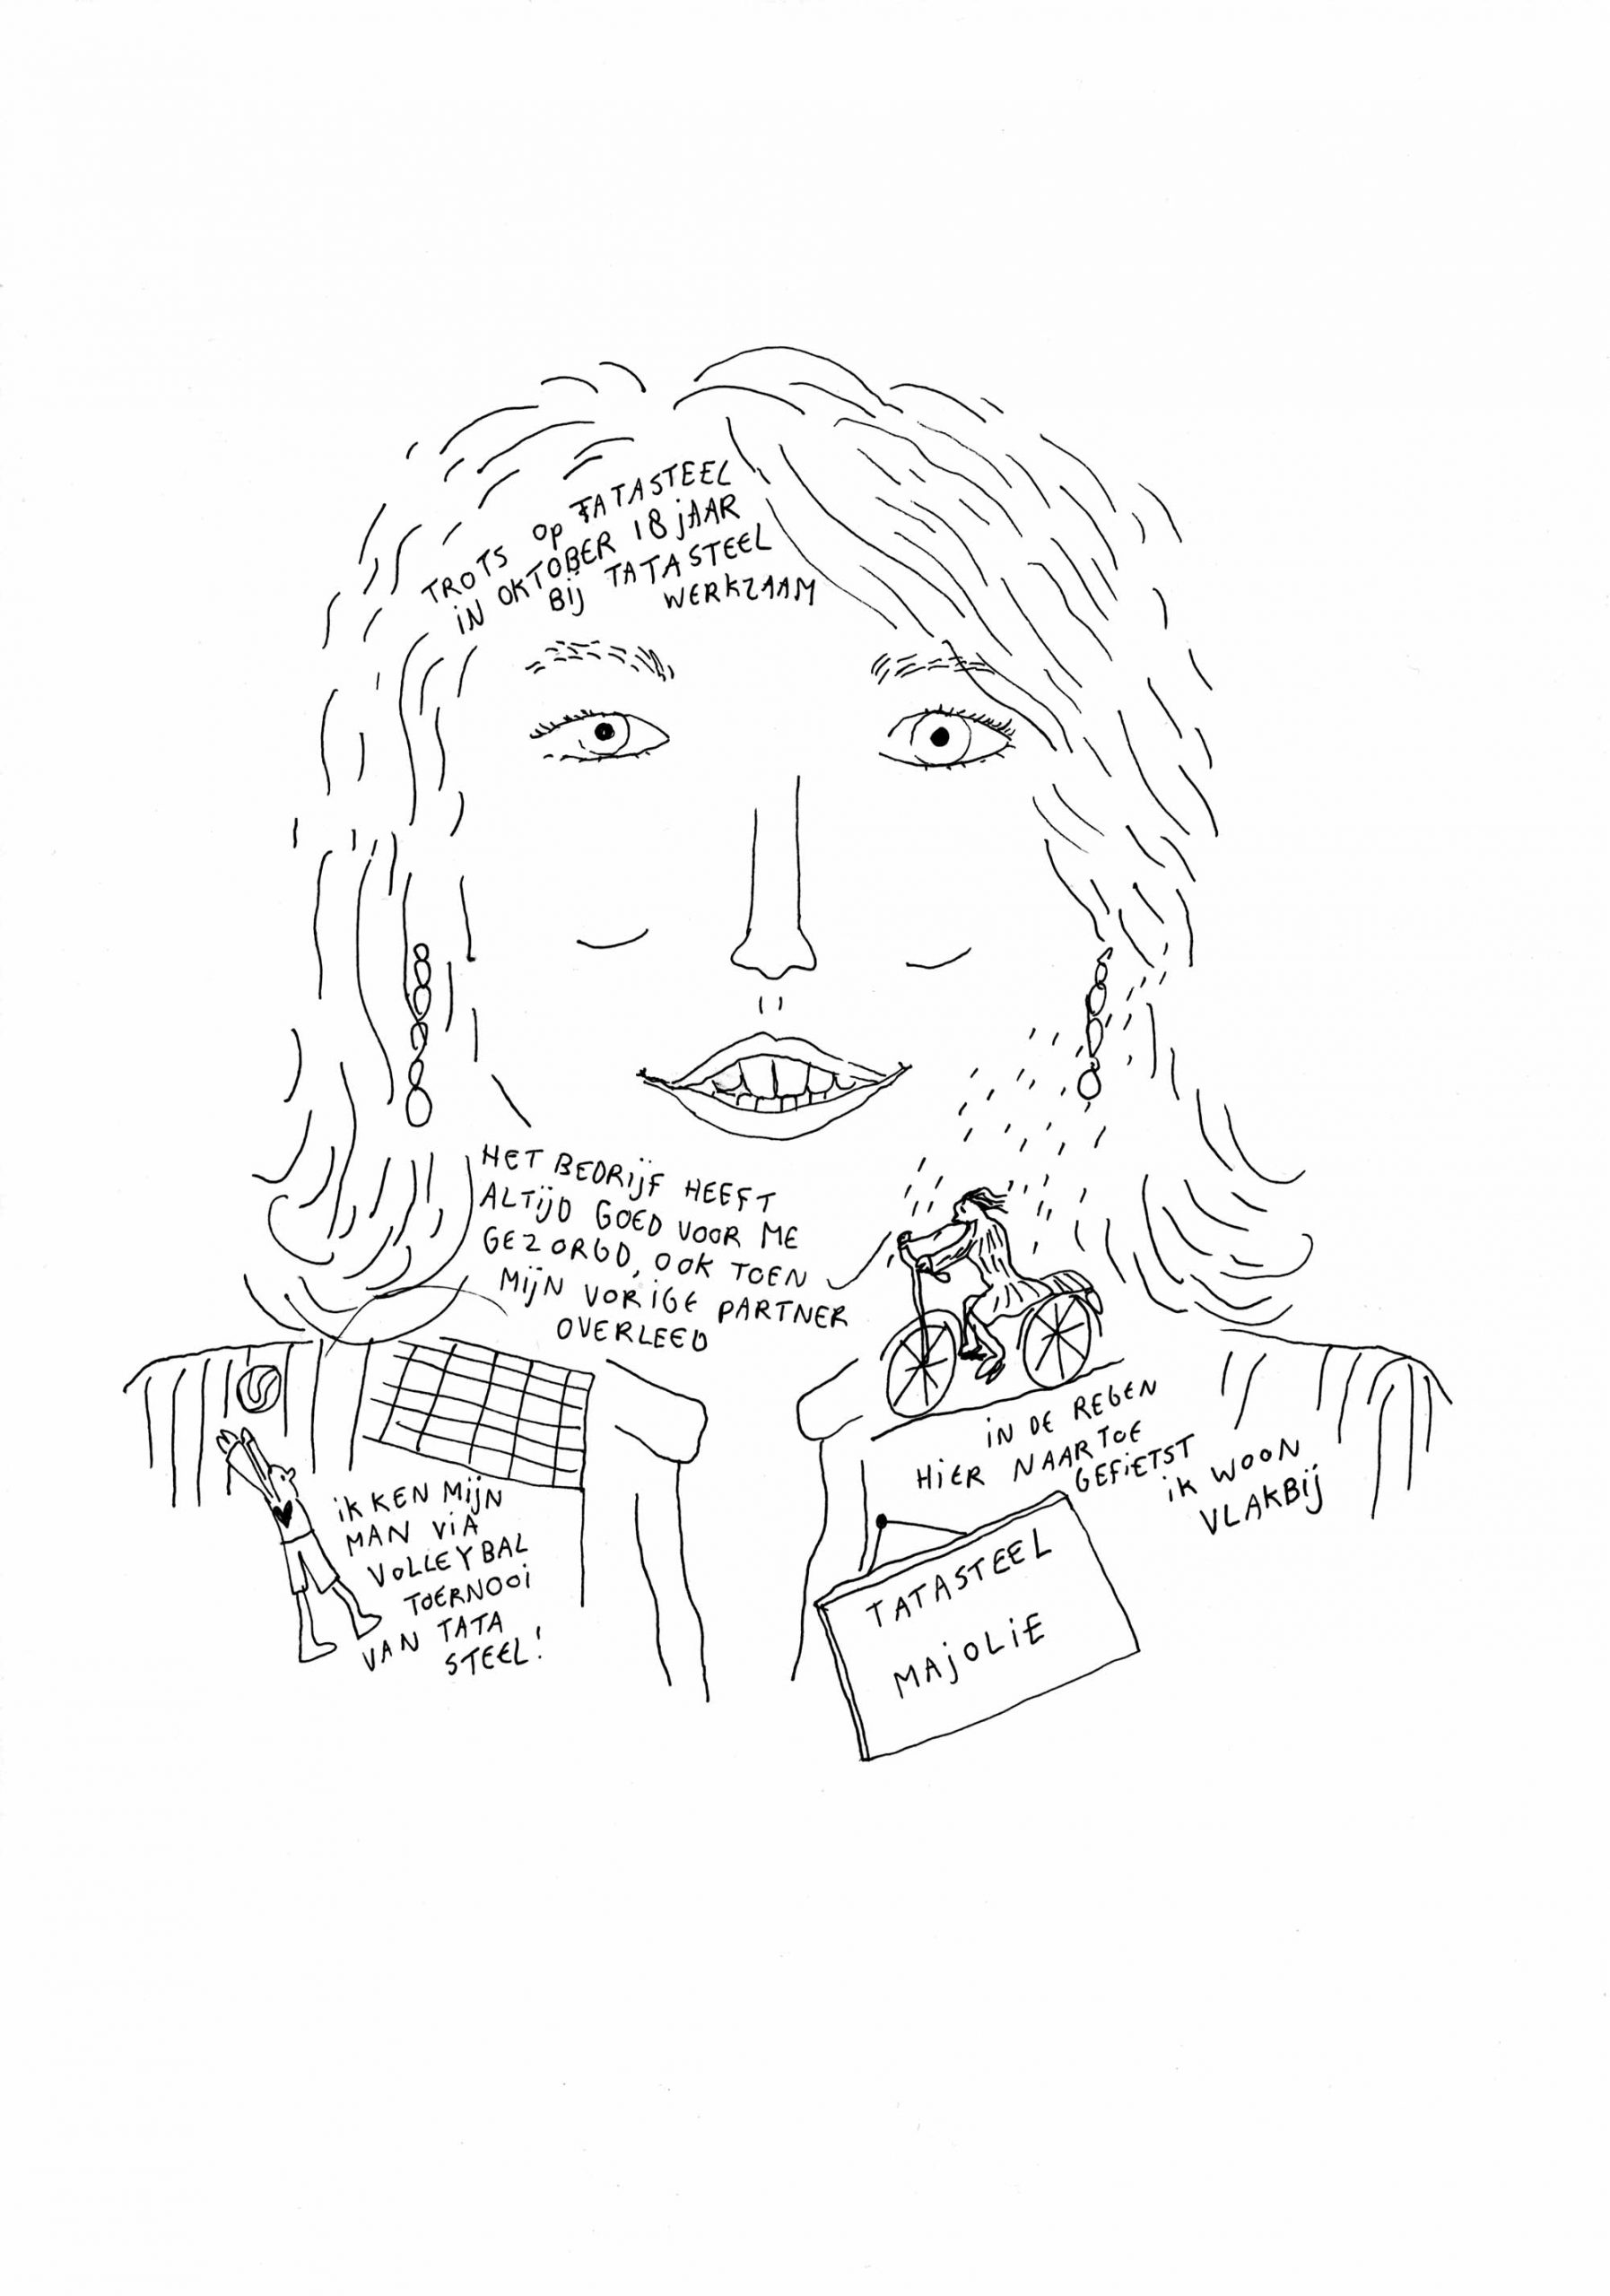 TROTS OP TATASTEEL
IN OKTOBER 18 JAAR
BIJ TATASTEEL
WERKZAAM
HET BEDRIJF HEEFT
ALTIJD GOED VOOR ME
GEZORGD, OOK TOEN
MIJN VORIGE PARTNER
OVERLEED
IK KEN MIJN
MAN VIA
VOLLEYBAL
TOERNOOI
VAN TATA
STEEL!
IN DE REGEN
HIER NAAR TOE
GEFIETST
IK WOON
VLAKBIJ
TATASTEEL
MAJOLIE